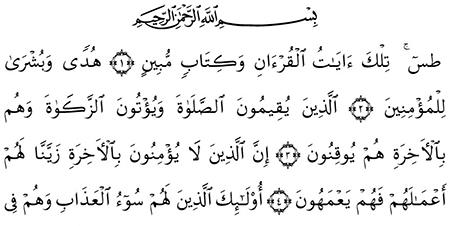 بِسْمِ ٱللَّهِ ٱلرَّحْمَٰنِ ٱلرَّحِيمِ
طسٓ ۚ تِلْكَ ءَايَٰتُ ٱلْقُرْءَانِ وَكِتَابٍ مُّبِينٍ ﴿١﴾ هُدًى وَبُشْرَىٰ
لِلْمُؤْمِنِينَ ﴿٢﴾ ٱلَّذِينَ يُقِيمُونَ ٱلصَّلَوٰةَ وَيُؤْتُونَ ٱلزَّكَوٰةَ وَهُم
بِٱلْأَخِرَةِ هُمْ يُوقِنُونَ ﴿٣﴾ إِنَّ ٱلَّذِينَ لَا يُؤْمِنُونَ بِٱلْأَخِرَةِ زَيَّنَّا لَهُمْ
أَعْمَٰلَهُمْ فَهُمْ يَعْمَهُونَ ﴿٤﴾ أُو۟لَٰٓئِكَ ٱلَّذِينَ لَهُمْ سُوٓءُ ٱلْعَذَابِ وَهُمْ فِى